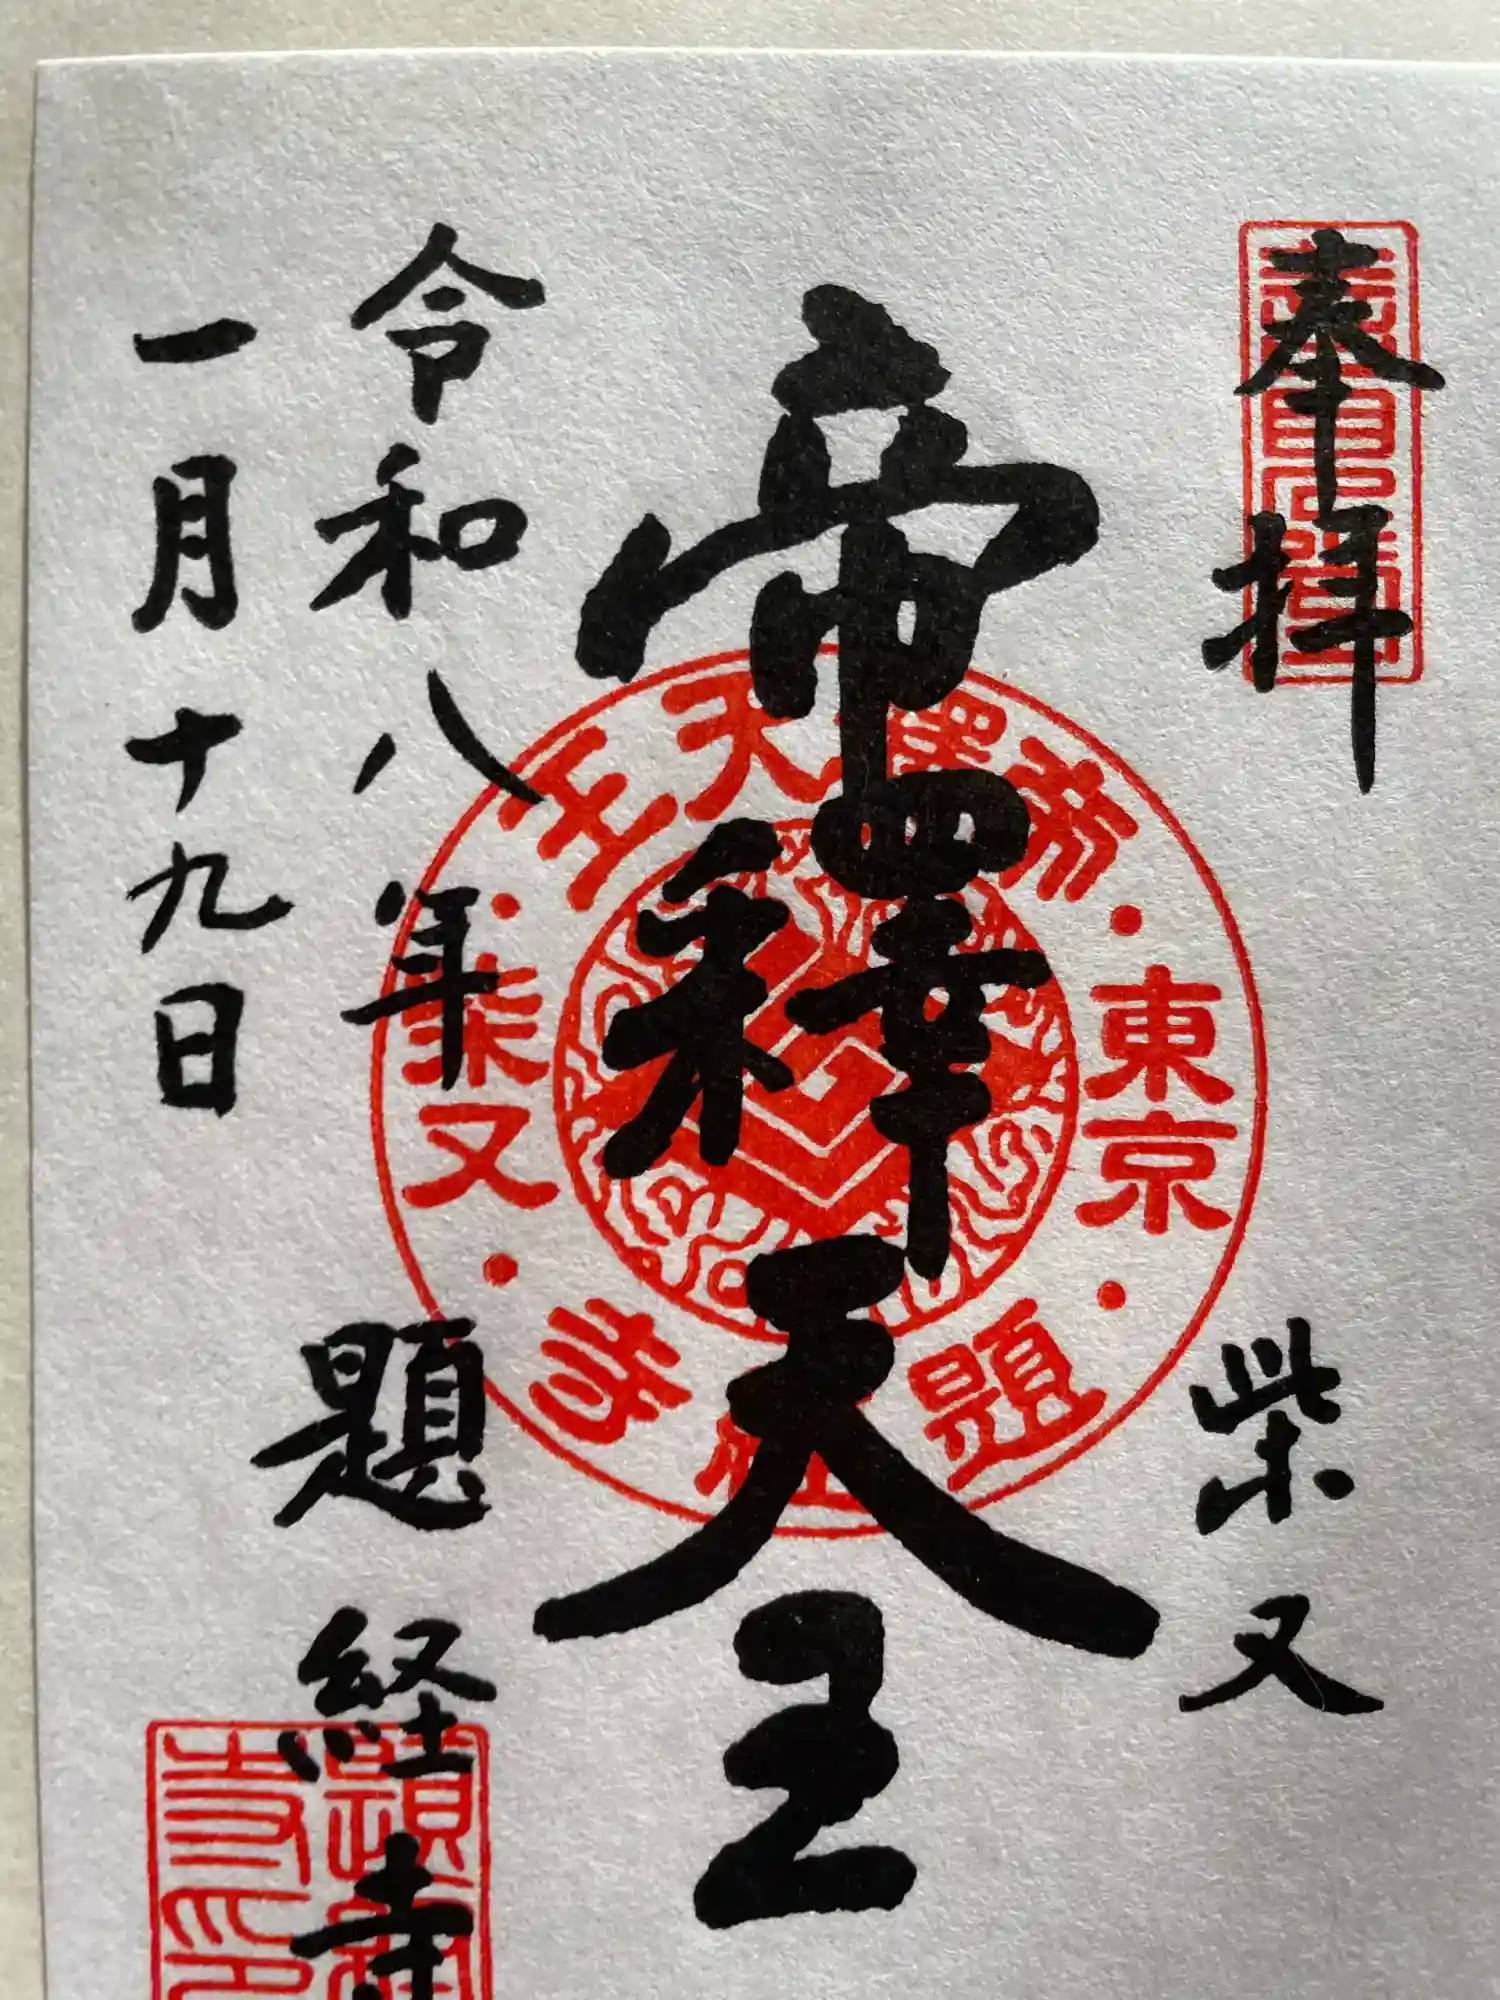 奉拝
柴又
帝釋天王
令和八年
一月十九日
題経寺
帝釋天王
東京
柴又
題経寺